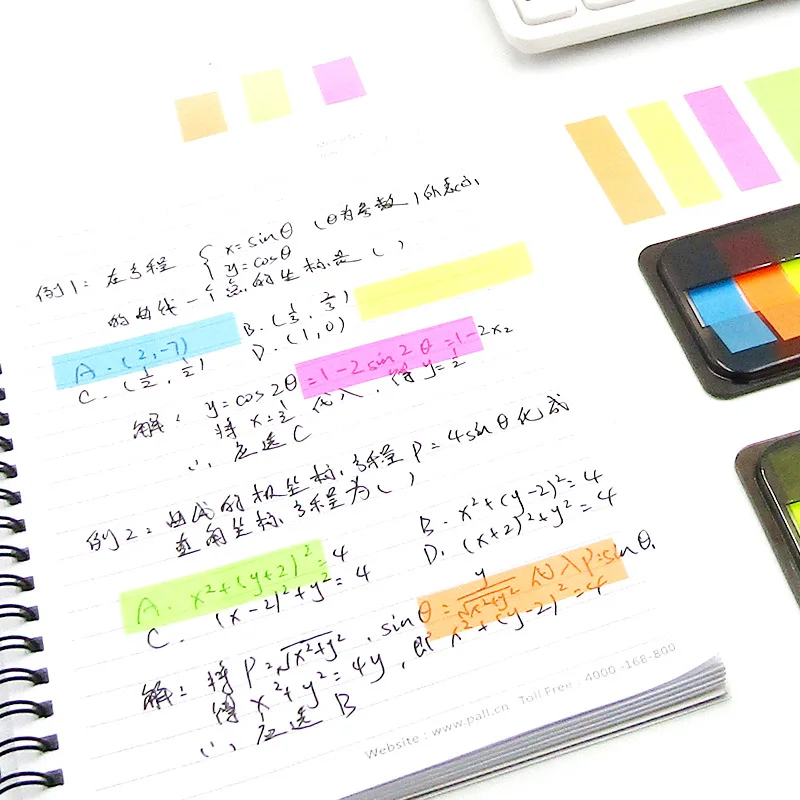 例1：在方程 { x=sinθ （θ为参数）所表示
y=cosθ
的曲线一个点的坐标是（ ）
A.（2,-7） B.（1/3, 2/3）
C.（1/2, 1/2） D.（1,0）
解：y=cos2θ=1-2sin2θ=1-2x2
将 x=1/2 代入，得 y=1/2
∴ 应选 C
例2：曲线的极坐标方程 P=4sinθ 化成
直角坐标方程为（ ）
A. x²+(y+2)²=4 B. x²+(y-2)²=4
C. (x-2)²+y²=4 D. (x+2)²+y²=4
解：将 P=√x²+y², sinθ=y/√x²+y² 代入 P=sinθ,
得 x²+y²=4y, 即 x²+(y-2)²=4
∴ 应选 B
Website : www.pall.cn Toll Free : 4000-168-800